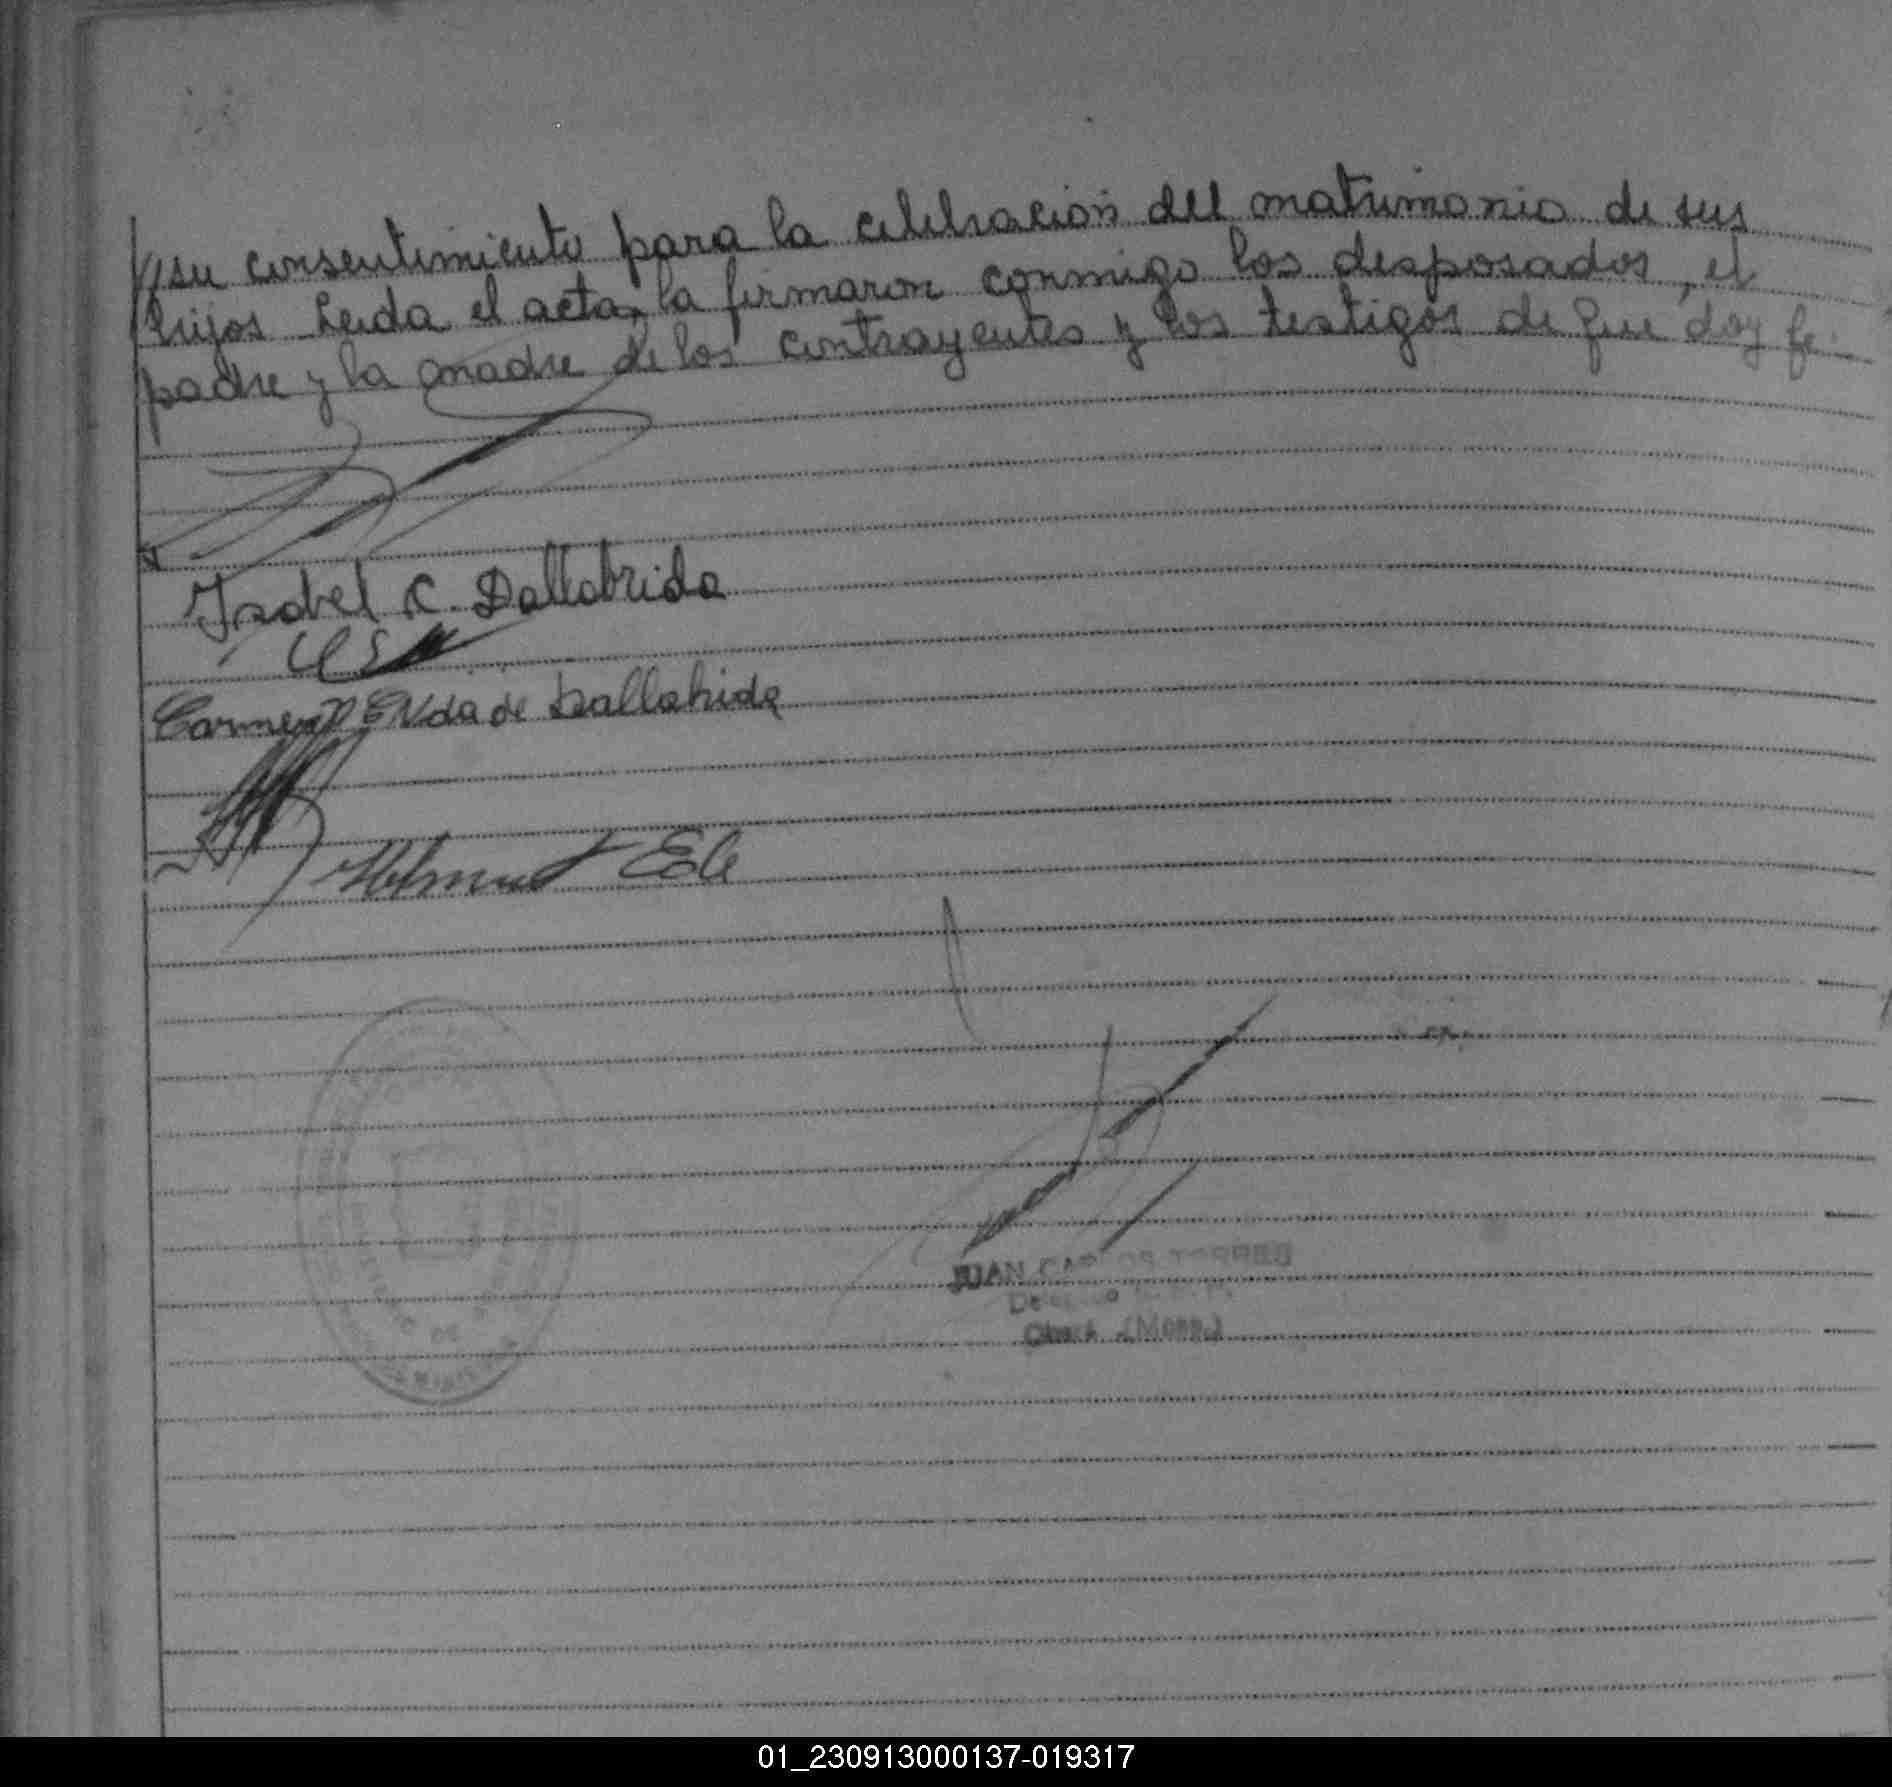 su consentimiento para la celebración del matrimonio de sus
hijos Leida el acta, la firmaron conmigo los desposados, el
padre y la madre de los contrayentes y los testigos de que doy fe.
Isabel C. Dallabrida
Carmen Vda de Dallabrida
Helmut Ede
JUAN CARLOS TORRES
Oberá (Mnes.)
01_230913000137-019317